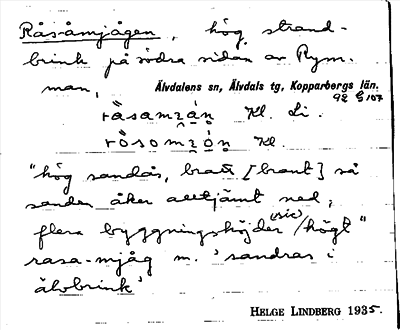 Råsåmjågen, hög strand-
brink på södra sidan av Rym-
man,
Älvdalens sn, Älvdals tg, Kopparbergs län.
92 G 107
Kl. Li.
Kl.
"hög sandås, bratt [brant] så
sanden åker alltjämt ned,
flera byggningshöjder (sic) / högt"
rasa-mjåg m. 'sandras i
älvbrink'
HELGE LINDBERG 1935.